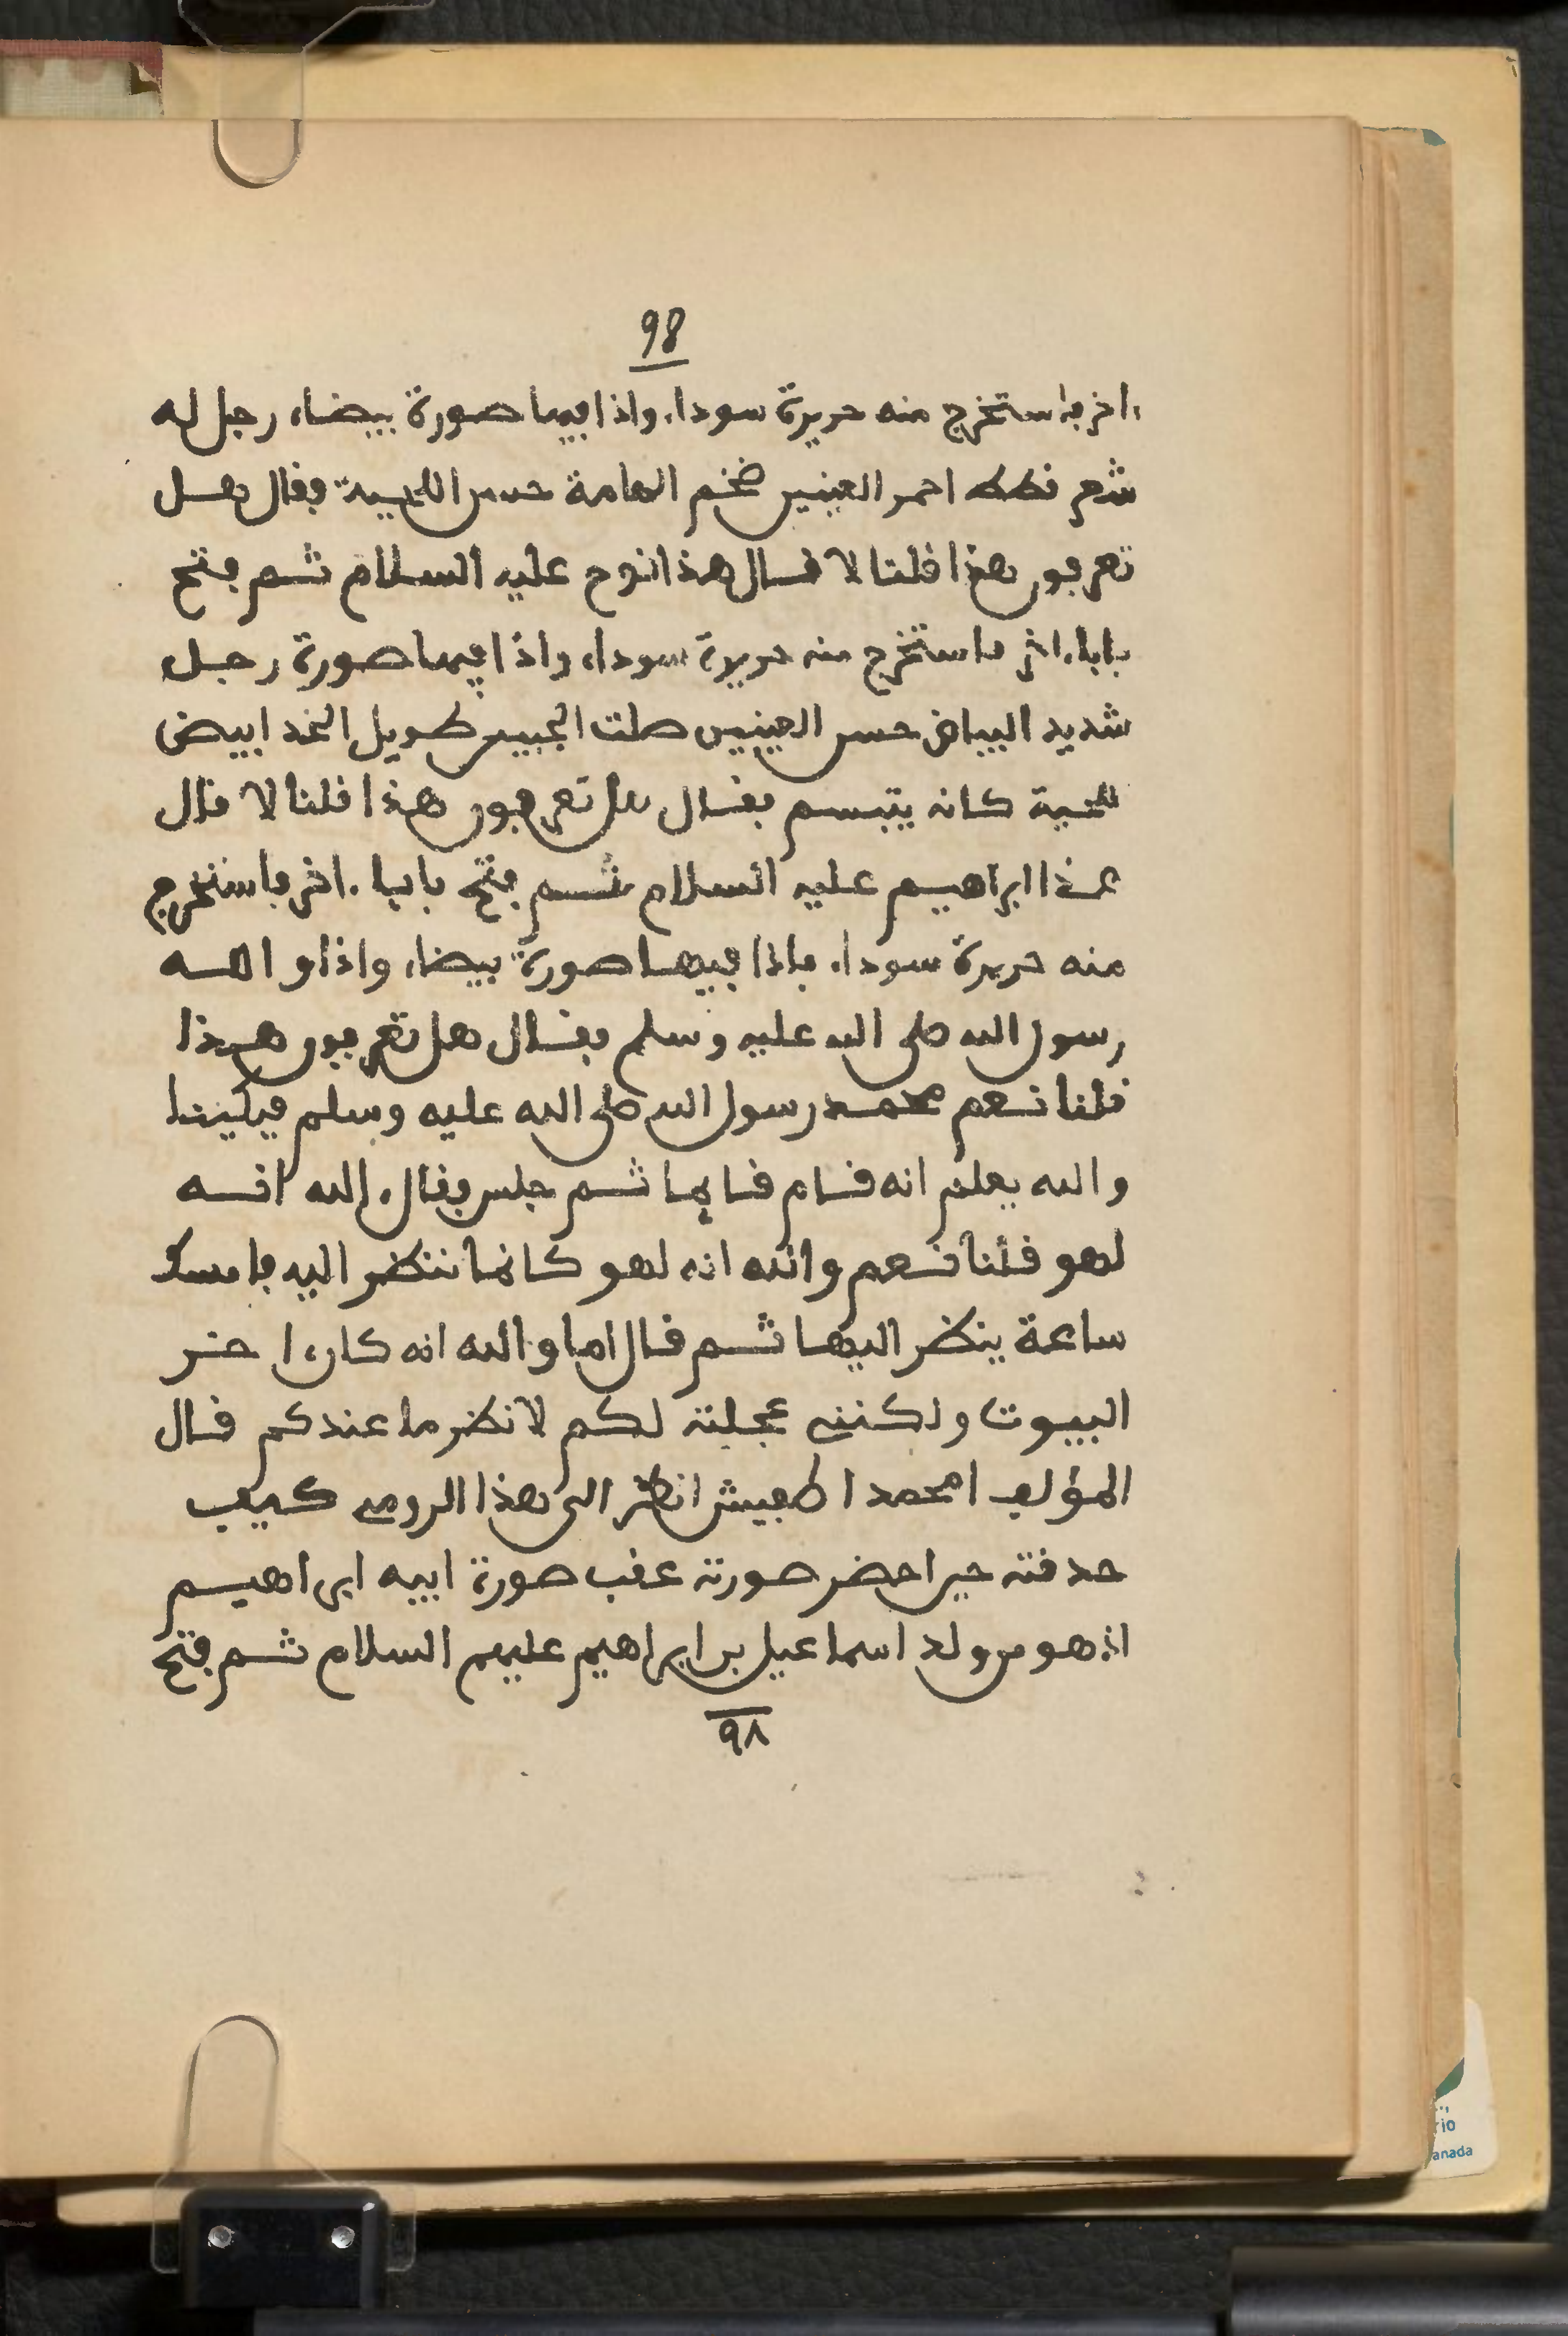 98
اخر فاستخرج منه حريرة سوداء واذا فيها صورة بيضاء رجل له
شعر قطط احمر العينين ضخم الهامة حسن اللحية فقال هل
تعرفون هذا قلنا لا قال هذا نوح عليه السلام ثم فتح
بابا اخر فاستخرج منه حريرة سوداء واذا فيها صورة رجل
شديد البياض حسن العينين صلت الجبين طويل الخد ابيض
اللحية كانه يتبسم فقال هل تعرفون هذا قلنا لا قال
هذا ابراهيم عليه السلام ثم فتح بابا اخر فاستخرج
منه حريرة سوداء فاذا فيها صورة بيضاء واذا والله
رسول الله صلى الله عليه وسلم فقال هل تعرفون هذا
قلنا نعم محمد رسول الله صلى الله عليه وسلم فبكينا
والله يعلم انه قام قايما ثم جلس وقال الله انه
لهو قلنا نعم والله انه لهو كانما ننظر اليه فامسك
ساعة ينظر اليها ثم قال اما والله انه كان اخر
البيوت ولكنني عجلته لكم لانظر ما عندكم قال
المؤلف امحمد اطفيش انظر الى هذا الرومي كيف
حدقته حين احضر صورته عقب صورة ابيه ابراهيم
اذ هو من ولد اسماعيل بن ابراهيم عليهم السلام ثم فتح
٩٨